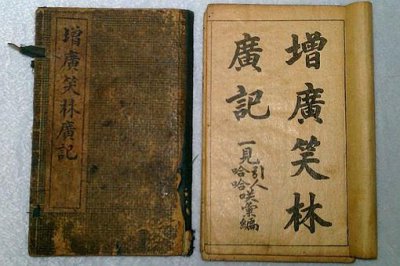 增廣笑林廣記
增廣笑林
廣記
一見哈哈
引人咲
彙編